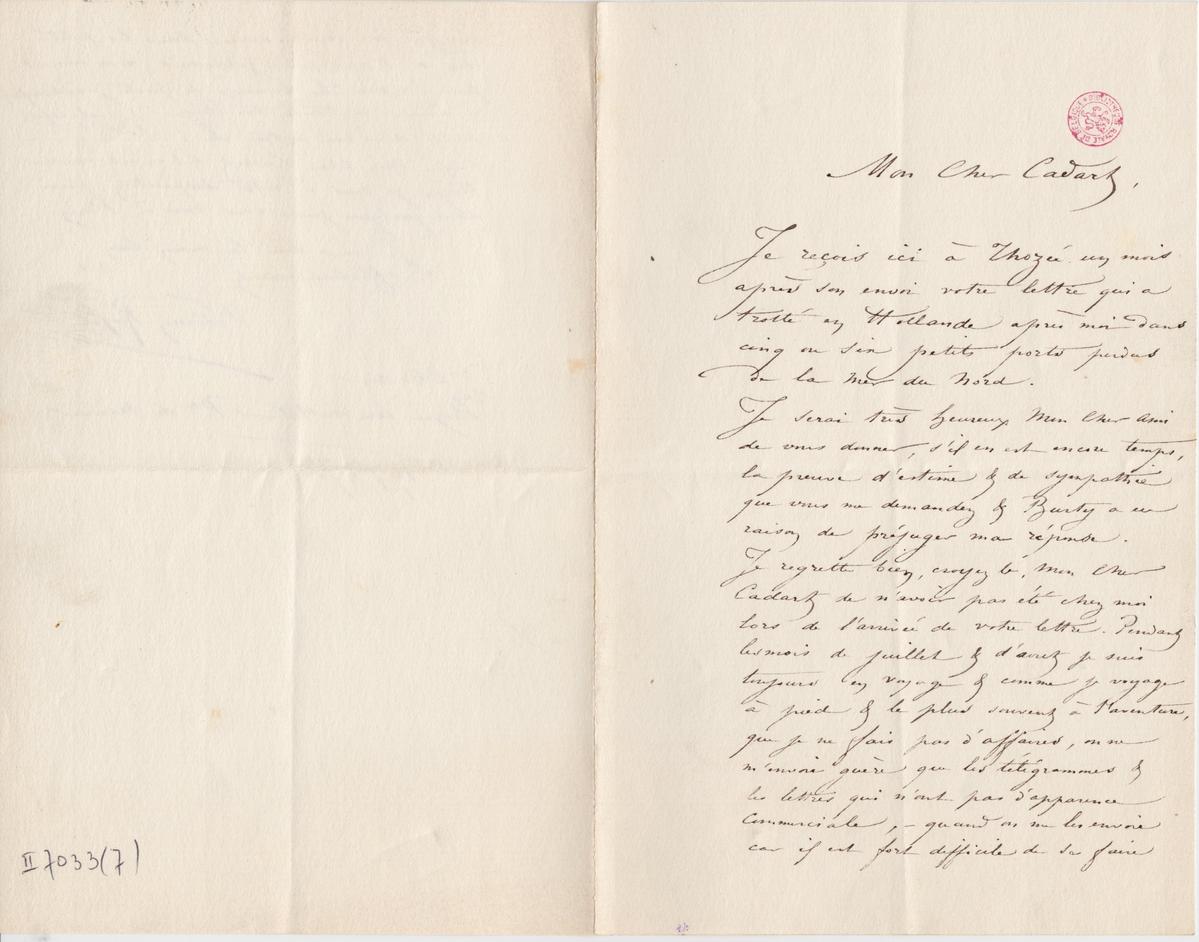 BIBLIOTHÈQUE ROYALE DE BELGIQUE
Mon Cher Cadart,
Je reçois ici à Thozée un mois
après son envoi votre lettre qui a
trotté en Hollande après moi dans
cinq ou six petits ports perdus
de la Mer du Nord.
Je serai très heureux Mon Cher Ami
de vous donner, s'il en est encore temps,
la preuve d'estime & de sympathie
que vous me demandez & Burty a eu
raison de préjuger ma réponse.
Je regrette bien, croyez le, Mon Cher
Cadart de n'avoir pas été chez moi
lors de l'arrivée de votre lettre. Pendant
les mois de juillet & d'août je suis
toujours en voyage & comme je voyage
à pied & le plus souvent à l'aventure,
que je ne fais pas d'affaires, on ne
m'envoie guère que les télégrammes &
les lettres qui n'ont pas d'apparence
commerciale, – quand on me les envoie
car il est fort difficile de se faire
II 7033(7)